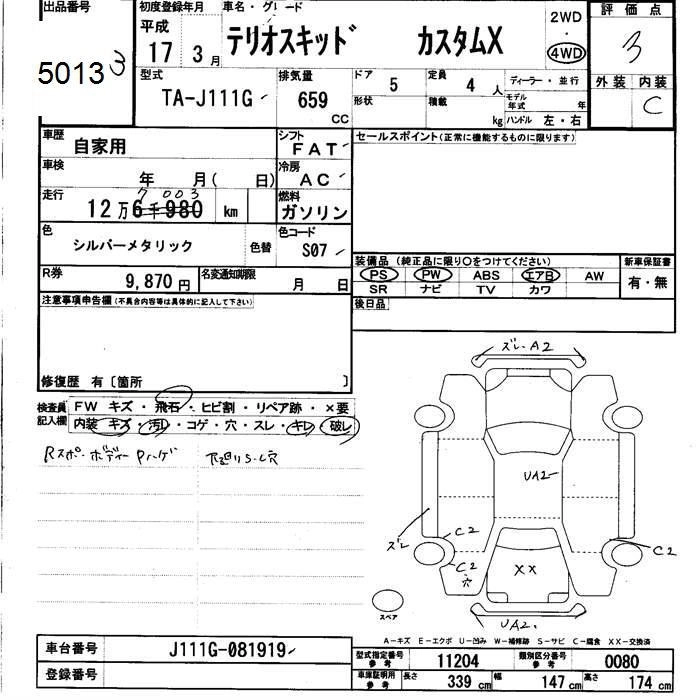 出品番号
5013
3
初度登録年月
平成
17 3月
車名・グレード
テリオスキッド カスタムX
2WD
・
4WD
評価点
3
外装 内装
C
型式
TA-J111G
排気量
659
CC
ドア
5
定員
4人
形状
積載
kg
ディーラー・並行
モデル年式 年
ハンドル 左・右
車歴
自家用
シフト
FAT
車検
年 月( 日)
冷房
AC
走行
7 003
12万6千980 km
燃料
ガソリン
色
シルバーメタリック
色替
色コード
S07
R券
9,870円
名変通知期限
月 日
セールスポイント(正常に機能するものに限ります)
装備品(純正品に限り○をつけてください)
PS PW ABS エアB AW
SR ナビ TV カワ
新車保証書
有・無
後日品
注意事項申告欄(不具合内容等は具体的に記入して下さい)
修復歴 有〔箇所 〕
検査員記入欄
FW キズ・飛石・ヒビ割・リペア跡・×要
内装 キズ・汚れ・コゲ・穴・スレ・キレ・破レ
Rスポ・ボディーPハゲ
下廻りS・C穴
ズレ・A2
UA2
ズレ
C2
C2
穴
C2
XX
UA2
スペア
A-キズ E-エクボ U-凹み W-補修跡 S-サビ C-腐食 XX-交換済
車台番号
J111G-081919
登録番号
型式指定番号
参考
11204
類別区分番号
参考
0080
車庫証明用
参考
長さ
339cm
幅
147cm
高さ
174cm